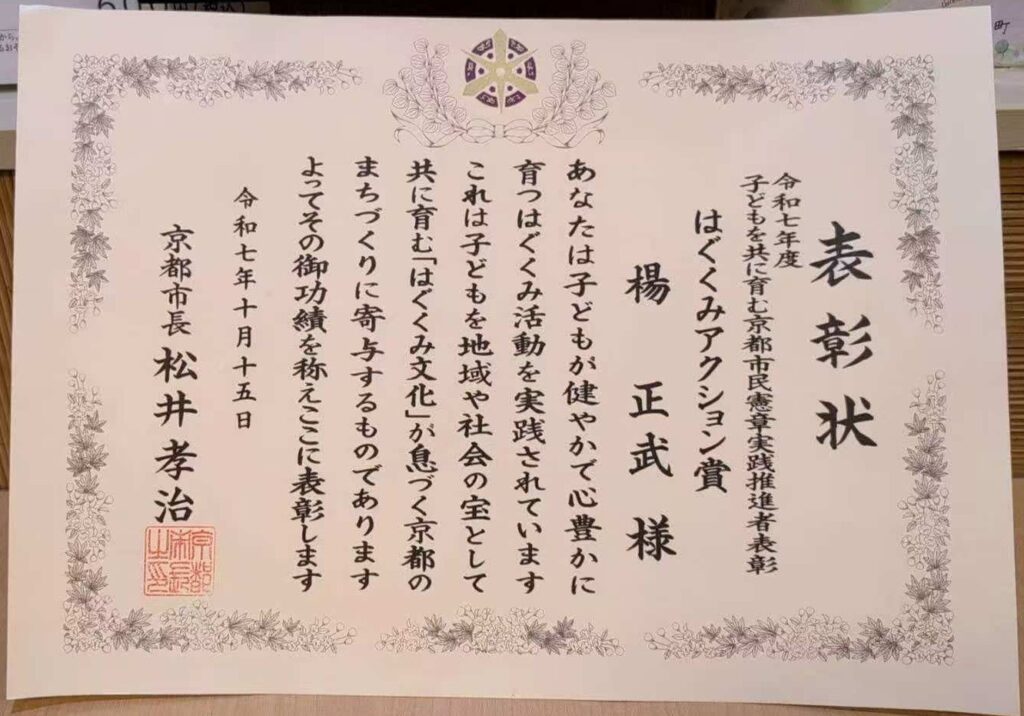 表彰状
令和七年度
子どもを共に育む京都市民憲章実践推進者表彰
はぐくみアクション賞
楊 正武 様
あなたは子どもが健やかで心豊かに
育つはぐくみ活動を実践されています
これは子どもを地域や社会の宝として
共に育む「はぐくみ文化」が息づく京都の
まちづくりに寄与するものであります
よってその御功績を称えここに表彰します
令和七年十月十五日
京都市長 松井孝治
京都
市長
之印